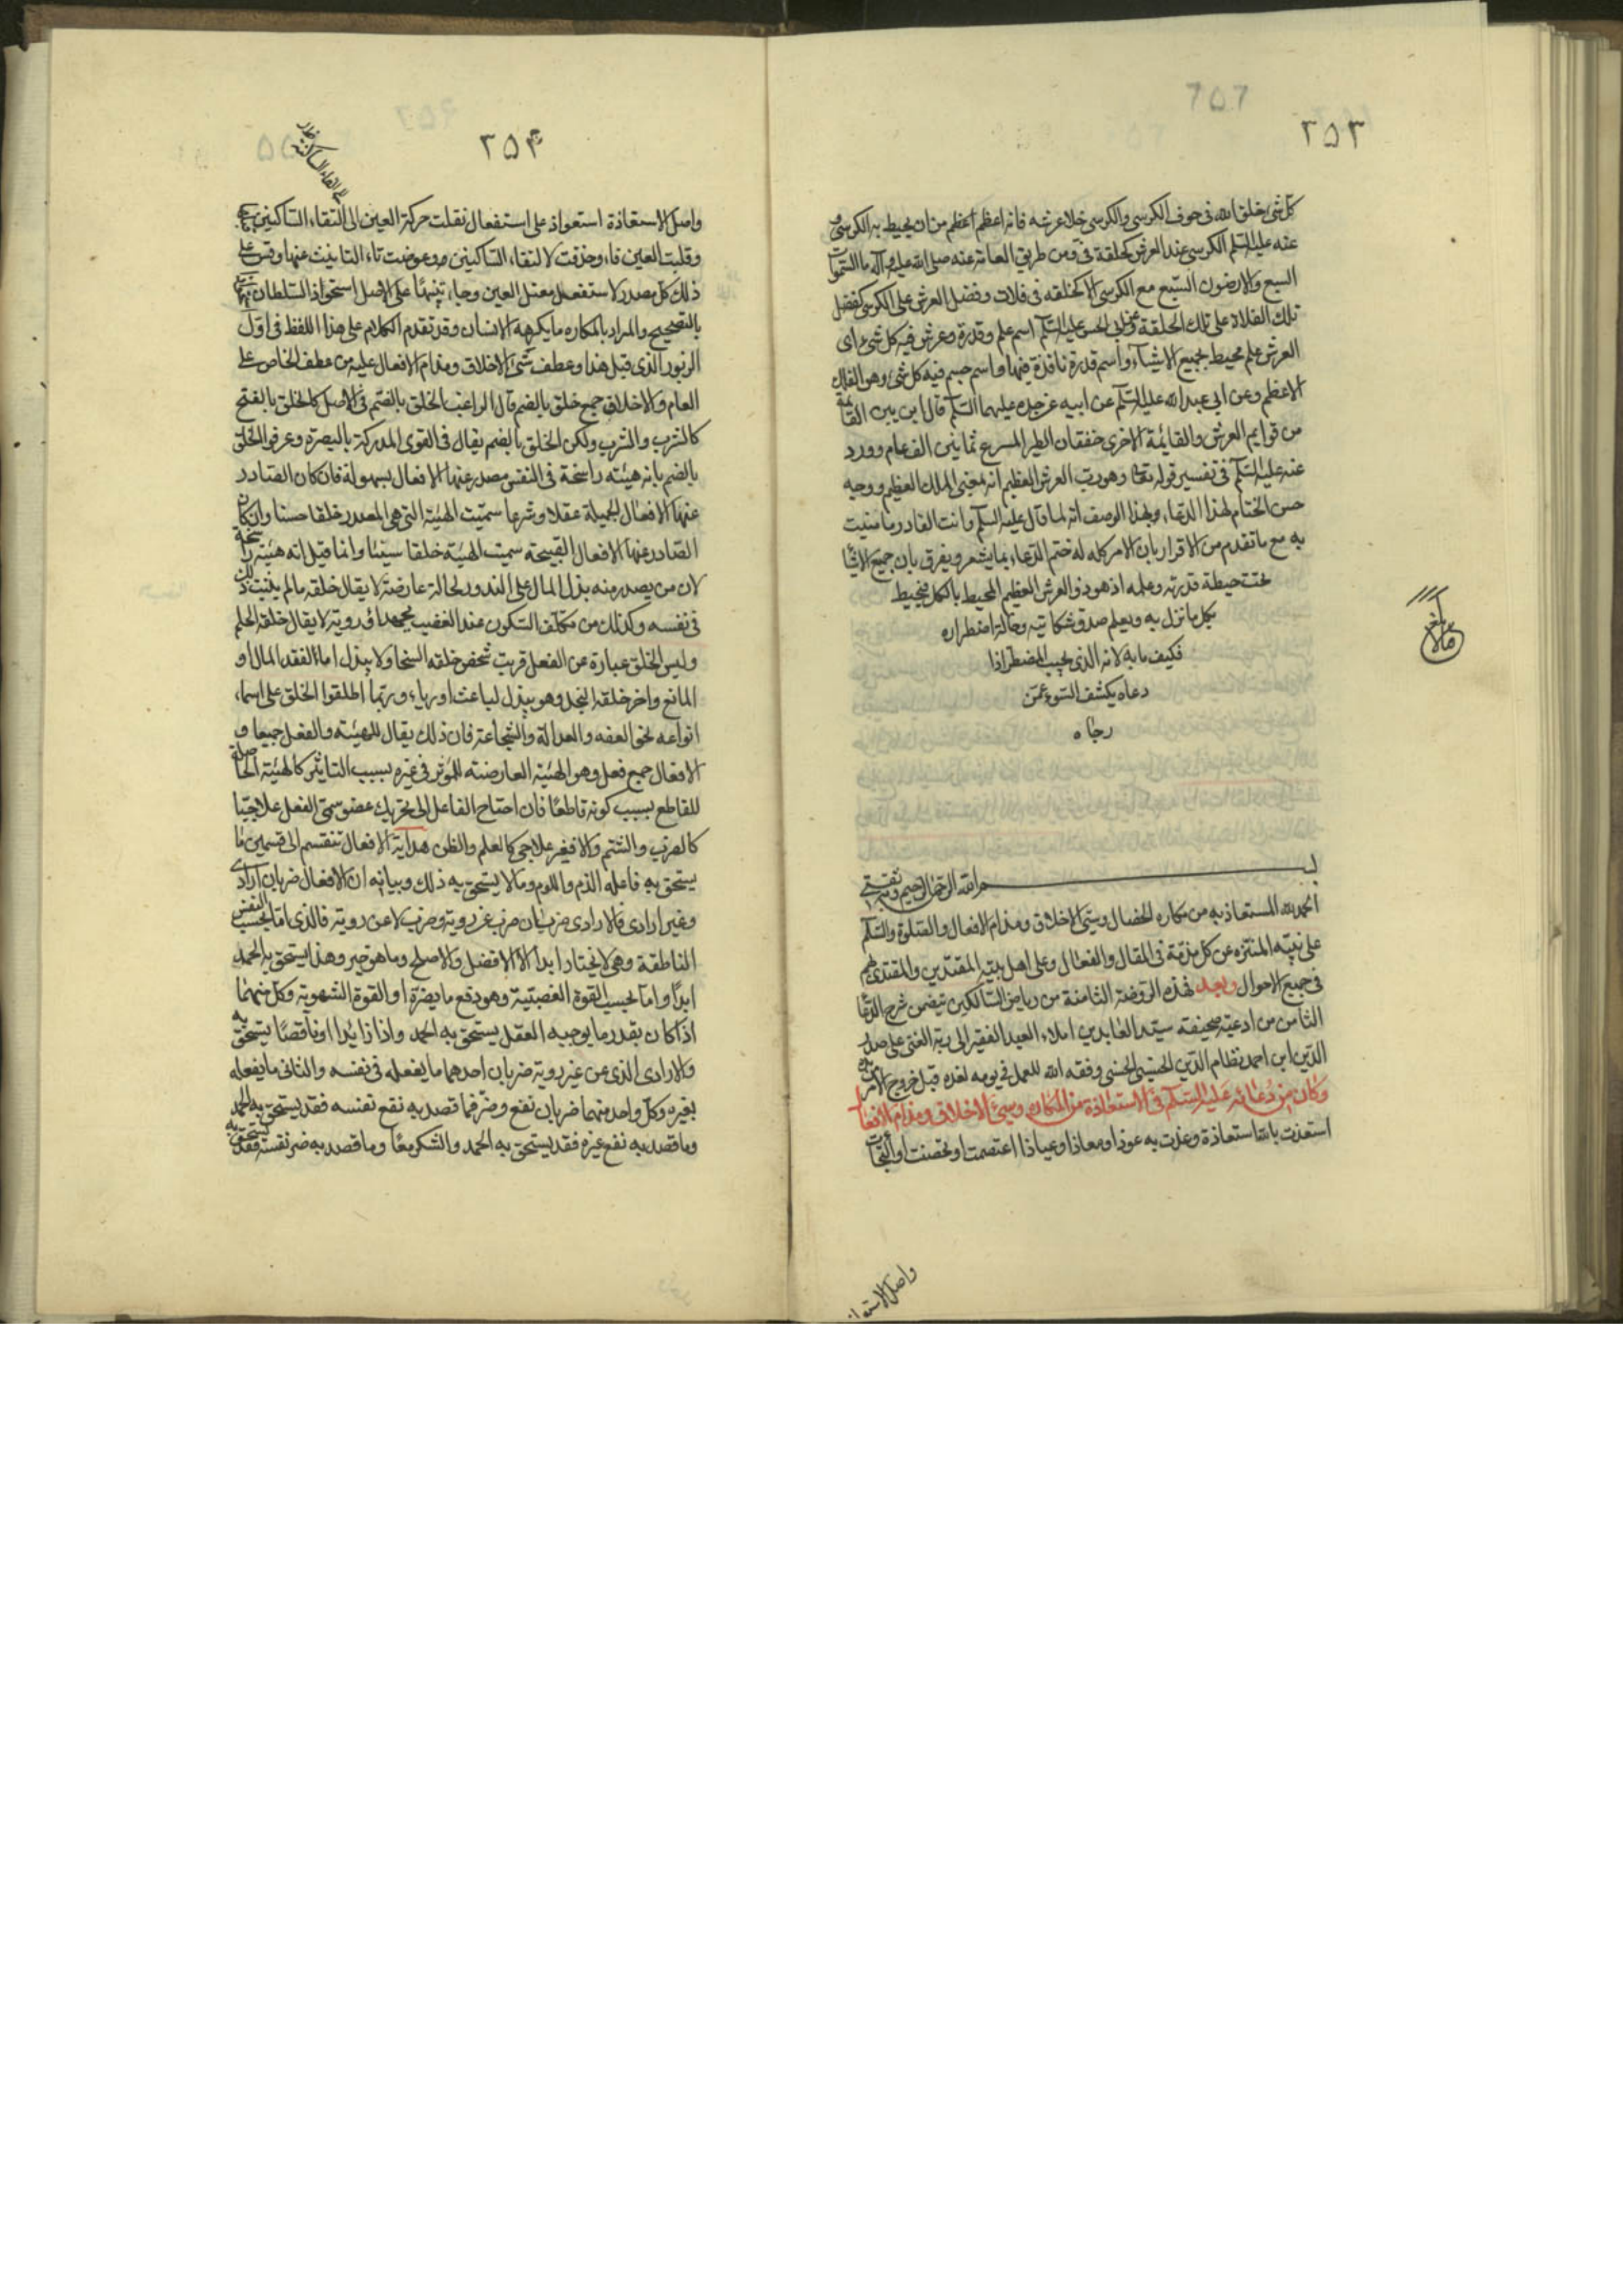 ٢٥٣
كل شئ خلق الله فى جوف الكرسى والكرسى خلا عرشه فانه اعظم اعظم من ان يحيط به الكرسى و
عنه عليه السلم الكرسى عند العرش كحلقة فى ومن طريق العامة عنه صلى الله عليه وآله ما السموات
السبع والارضون السبع مع الكرسى الا كحلقه فى فلات وفضل العرش على الكرسى كفضل
تلك الفلاة على تلك الحلقة وعن ابى الحسن عليه السلم اسم علم وقدرة وعرش فيه كل شئ اى
العرش علم محيط بجميع الاشياء واسم قدرة نافذة فيها واسم جسم فيه كل شئ وهو الفلك
الاعظم وعن ابى عبد الله عليه السلم عن ابيه عن جده عليهما السلم قال ان بين القائمة
من قوايم العرش والقايمة الاخرى خفقان الطير المسرع ثمانين الف عام وورد
عنه عليه السلم فى تفسير قوله تعالى وهو رب العرش العظيم انه بمعنى الملك العظيم ووجه
حسن الختام لهذا الدعاء وبهذا الوصف انه لما قال عليه السلم وانت القادر ما منيت
به مع ما تقدم من الاقرار بان الامر كله له ختم الدعاء بما يشعر ويفرق بان جميع الاشيا
تحت حيطة قدرته وعلمه اذ هو ذو العرش العظيم المحيط بالكل فيحيط
بكل ما نزل به ويعلم صدق شكايته وحالة اضطراره
فكيف ما به لانه الذى يجيب المضطر اذا
دعاه يكشف السوء عمن
رجاه
بسم الله الرحمن الرحيم وبه ثقتى
الحمد لله المستعاذ به من مكاره الخصال وسيئ الاخلاق ومذام الافعال والصلوة والسلم
على نبيه المنزه عن كل مذمة فى المقال والفعال وعلى اهل بيته المقتدين والمقتدى بهم
فى جميع الاحوال وبعد فهذه الروضة الثامنة من رياض السالكين تتضمن شرح الدعا
الثامن من ادعية صحيفة سيد العابدين املاء العبد الفقير الى ربه الغنى على صدر
الدين ابن احمد نظام الدين الحسينى الحسنى وفقه الله للعمل فى يومه لغده قبل خروج الامر من يده
وكان من دعائه عليه السلم فى الاستعاذة من المكاره وسيئ الاخلاق ومذام الافعال
استعذت بالله استعاذة وعذت به عوذا ومعاذا وعياذا اعتصمت او تحصنت او التجأت
واصل الاستعا
٢٥۴
واصل الاستعاذة استعواذ على استفعال نقلت حركة العين الى التقاء الساكنين
وقلبت العين فاء وحذفت لالتقاء الساكنين وعوضت تاء التانيث عنها وقس على
ذلك كل مصدر لاستفعل معتل العين وجاء تنبيها على الاصل استحواذ السلطان
بالتصحيح والمراد بالمكاره ما يكرهه الانسان وقد تقدم الكلام على هذا اللفظ فى اول
الزبور الذى قبل هذا وعطف سيئ الاخلاق ومذام الافعال عليه من عطف الخاص على
العام والاخلاق جمع خلق بالضم قال الراغب الخلق بالضم فى الاصل كالخلق بالفتح
كالشرب والشرب ولكن الخلق بالضم يقال فى القوى المدركة بالبصيرة وعرفوا الخلق
بالضم بانه هيئته راسخة فى النفس مصدر عنها الافعال بسهولة فان كان الصادر
عنها الافعال الجميلة عقلا وشرعا سميت الهيئة التى هى المصدر خلقا حسنا وان كان
الصادر عنها الافعال القبيحة سميت الهيئة خلقا سيئا وانما قيل انه هيئة راسخة
لان من يصدر منه بذل المال على الندور لحالة عارضة لا يقال خلقه ما لم يثبت ذلك
فى نفسه وكذلك من تكلف السكون عند الغضب بجهد او روية لا يقال خلقه الحلم
وليس الخلق عبارة عن الفعل فرب شخص خلقه السخا ولا يبذل اما لفقد المال او
المانع واخر خلقه البخل وهو يبذل لباعث او رياء وربما اطلقوا الخلق على اسماء
انواعه نحو العفه والعدالة والشجاعة فان ذلك يقال للهيئة والفعل جميعا و
الافعال جمع فعل وهو الهيئة العارضته للمؤثر فى غيره بسبب التاثير كالهيئة الحاصلة
للقاطع بسبب كونه قاطعا فان احتاج الفاعل الى تحريك عضو سمى الفعل علاجيا
كالضرب والشتم والا فغير علاجى كالعلم والظن هداية الافعال تنقسم الى قسمين ما
يستحق به فاعله الذم واللوم وما لا يستحق به ذلك وبيانه ان الافعال ضربان ارادى
وغير ارادى فالارادى ضربان ضرب عن روية وضرب لا عن روية فالذى اما بحسب النفس
الناطقة وهى لا يختار ابدا الا الافضل والاصلح وما هو خير وهذا يستحق به الحمد
ابدا واما بحسب القوة الغضبتية وهو دفع ما يضره او القوة الشهوية وكل منهما
اذا كان بقدر ما يوجبه العقل يستحق به الحمد واذا زايدا او ناقصا يستحق به
والارادى الذى من غير روية ضربان احدهما ما يفعله فى نفسه والثانى ما يفعله
بغيره وكل واحد منهما ضربان نفع وضر فما قصد به نفع نفسه فقد يستحق به الحمد
وما قصد به نفع غيره فقد يستحق به الحمد والشكر معا وما قصد به ضر نفسه فقد يستحق به